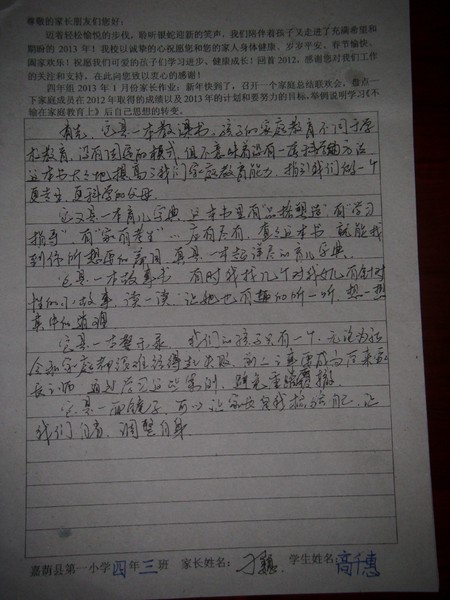 尊敬的家长朋友们您好：
迈着轻松愉悦的步伐，聆听银蛇迎新的笑声，我们陪伴着孩子又走进了充满希望和
期盼的2013年！我校以诚挚的心祝愿您和您的家人身体健康、岁岁平安、春节愉快、
阖家欢乐！祝愿我们可爱的孩子们学习进步、健康成长！回首2012，感谢您对我们工作
的关注和支持，在此向您致以衷心的感谢！
四年组2013年1月份家长作业：新年快到了，召开一个家庭总结联欢会，盘点一
下家庭成员在2012年取得的成绩以及2013年的计划和要努力的目标。举例说明学习《不
输在家庭教育上》后自己思想的转变。
首先，它是一本教课书，孩子的家庭教育不同于学
校教育，没有固定的模式，但不意味着没有一定科学的方法
这本书大大地提高了我们家庭教育能力，指引我们做一个
更专业，更科学的父母。
它又是一本育儿字典，这本书里有"品格塑造"有"学习
指导"有"家有考生"…应有尽有，查这本书就能找
到你所想要的部门，真是一本超详尽的育儿字典。
它是一本故事书，有时我找几个对我女儿有针对
性的小故事，读一读，让她也有趣的听一听，想一想
其中的道理
它是一本警示录，我们的孩子只有一个，无论为社
会和家庭都很难经得起失败，
它是一面镜子，可以让家长自我检查自己，让
我们自省，调整自身
嘉荫县第一小学四年三班 家长姓名： 学生姓名高千惠